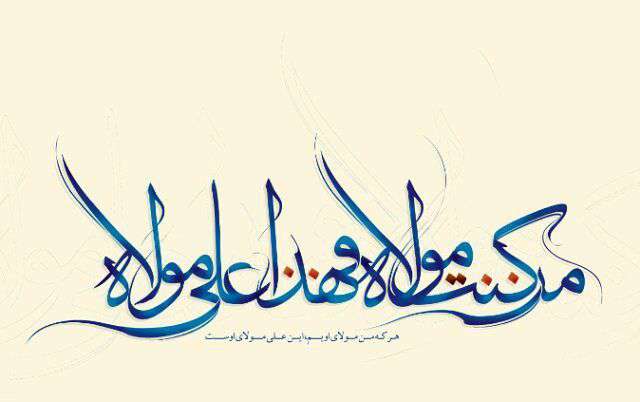 من کنت مولاه فهذا علی مولاه
هر که من مولای اویم، این علی مولای اوست